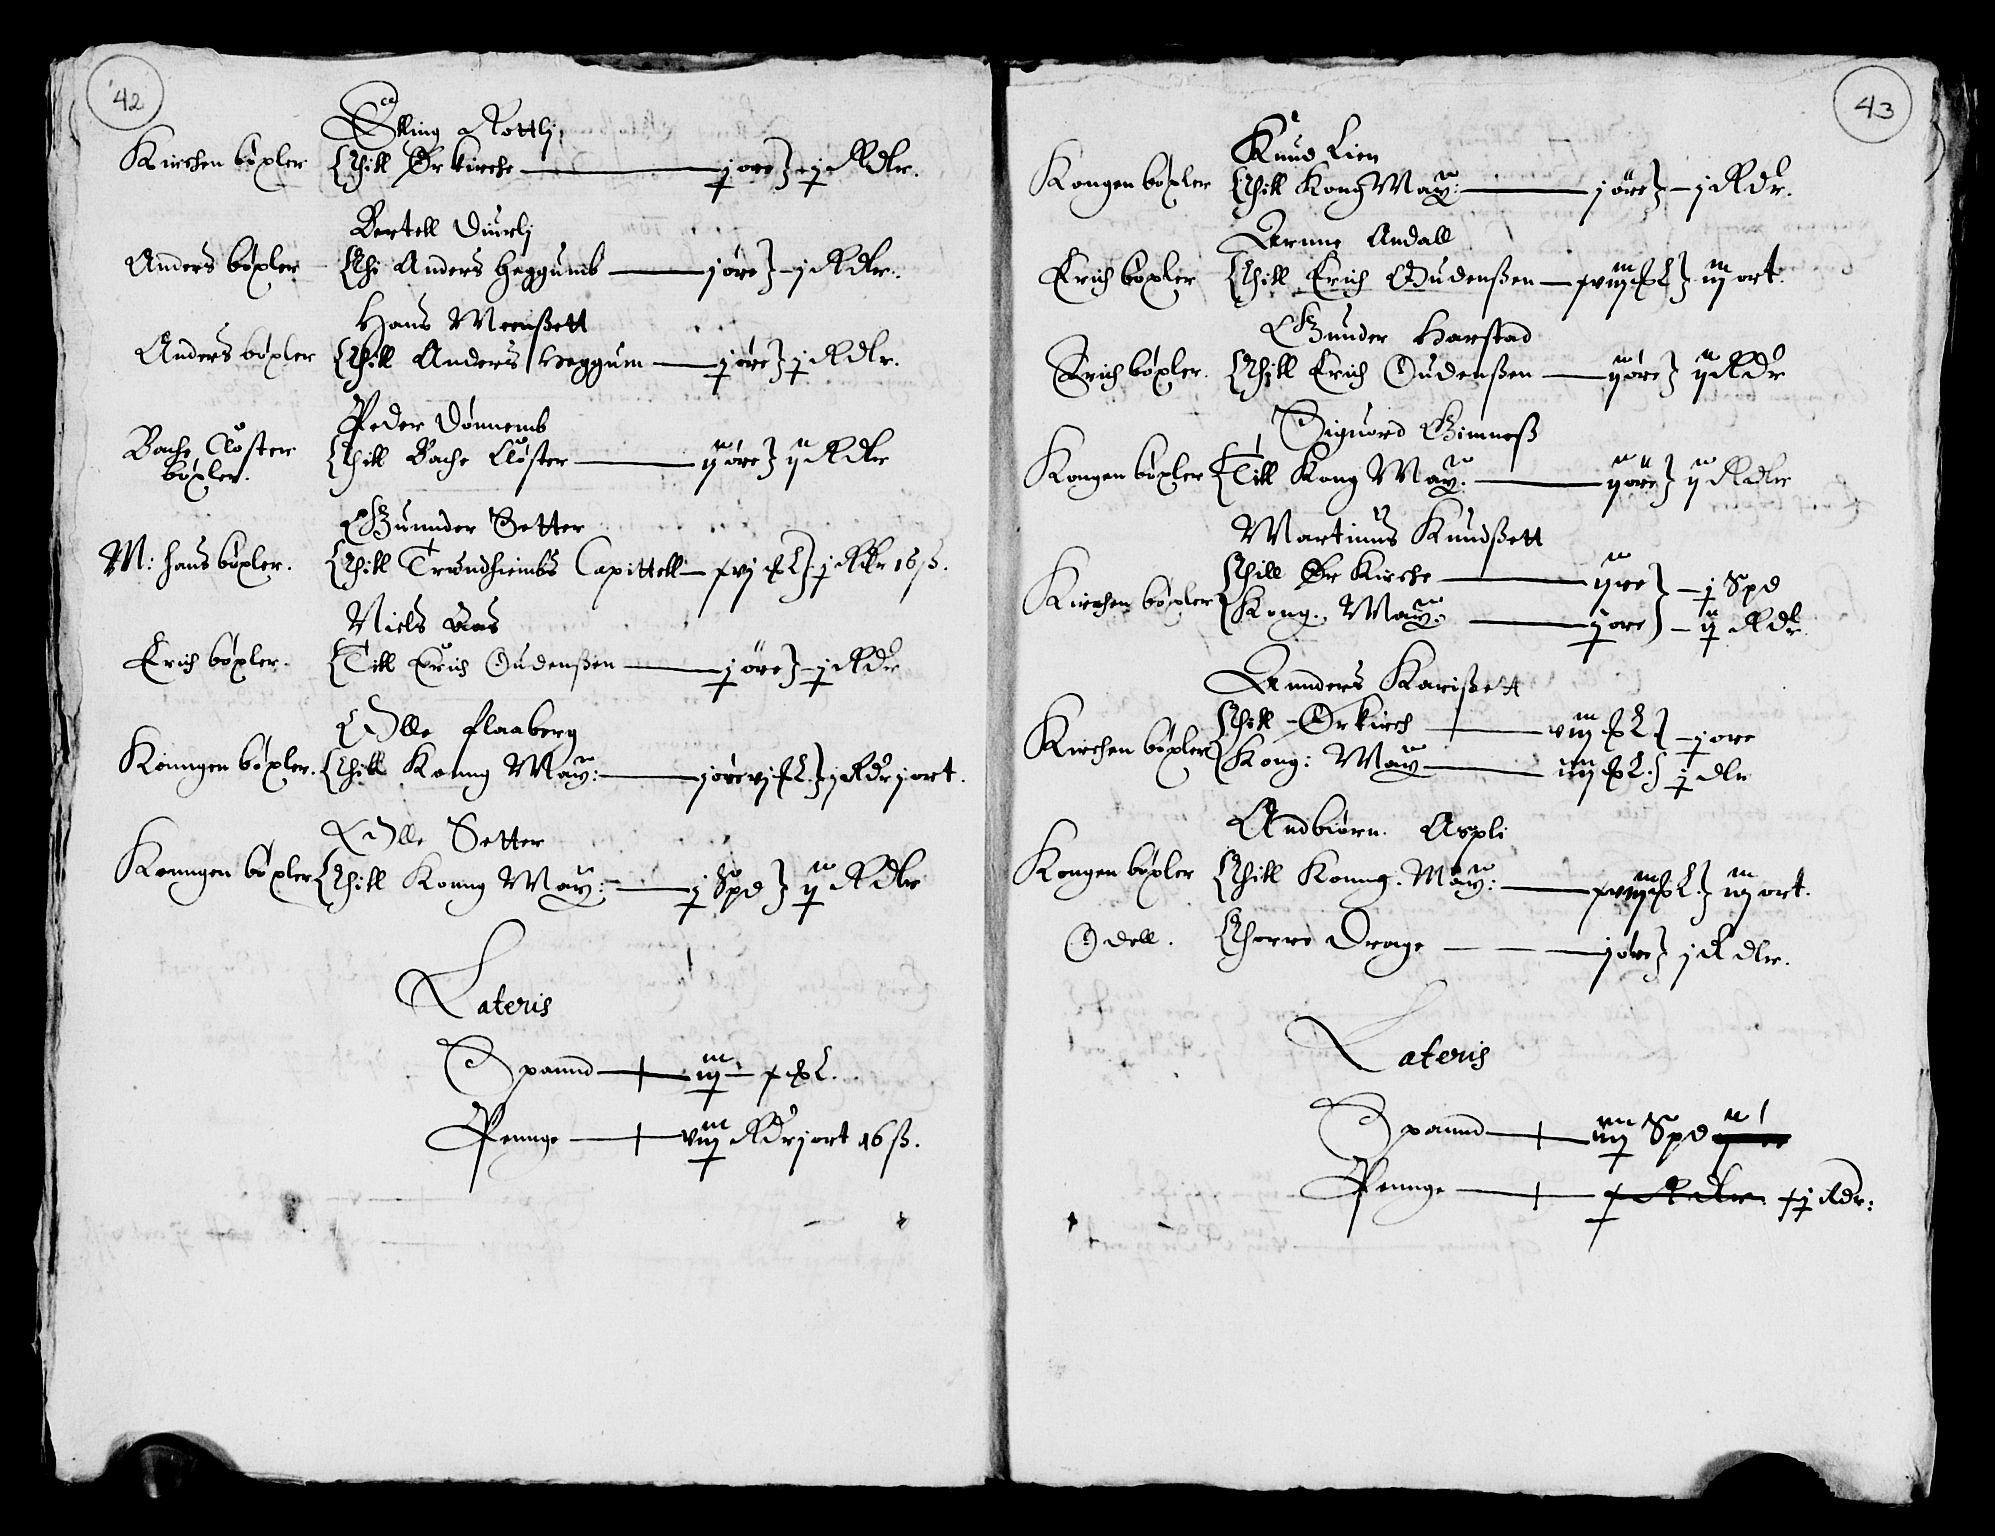 42
Elling Rottlj
Kirchen bøxler {Thill Ør kirche — j øre} — j Rdlr.
Bertell Diurlj
Anders bøxler {Thi Anders Heggumb — j øre} — j Rdlr.
Hans Meenßett
Anders bøxler {Thill Anders Heggum — j øre} j Rdlr.
Peder Dønnemb
Bache Closter bøxler. {Thill Bache Closter — ij øre} ij Rdlr
Gunnder Setter
M: Hans bøxler. {Thill Trondhiembs Capittell — xvj L} j Rdlr 16 ß.
Niels Aas
Erich bøxler. {Till Erich Oudenßen — j øre} — j Rdr
Olle Flaaberg
Konngen bøxler. {Thill Konng May: — j øre vj L.} j Rdr j ort.
Olle Setter
Konngen bøxler {Thill Konng May: — j Spd} ij Rdlr
Lateris
Spannd — iij — L.
Pennge — viij Rdr j ort 16 ß.
43
Knud Lien
Kongen bøxler {Thill Kong May: — j øre} — j Rdr.
Arnne Andall
Erich bøxler {Thill Erich Oudenßen — xviij L} iij ort.
Gunder Harstad
Erich bøxler. {Thill Erich Oudenßen — ij øre} ij Rdr
Siguord Gimneß
Kongen bøxler {Till Kong May. — ij øre} ij Rdlr
Martinus Knudßett
Kirchen bøxler {Thill Ør Kirche — ij re} — j Spd
{Kong. May. — ij ore} — ij Rdr.
Annders Karißett
Kirchen bøxler {Thill Ørkirch — viij L} — j ore
{Kong: May — iiij L.} j dlr
Andbiørn Aspli
Kongen bøxler {Thill Konng. May: — xviij L.} iij ort.
Odell. {Thorre Drage — j øre} j Rdlr.
Lateris
Spannd — iiij Spd
Pennge — x Rdlr. xj Rdr: